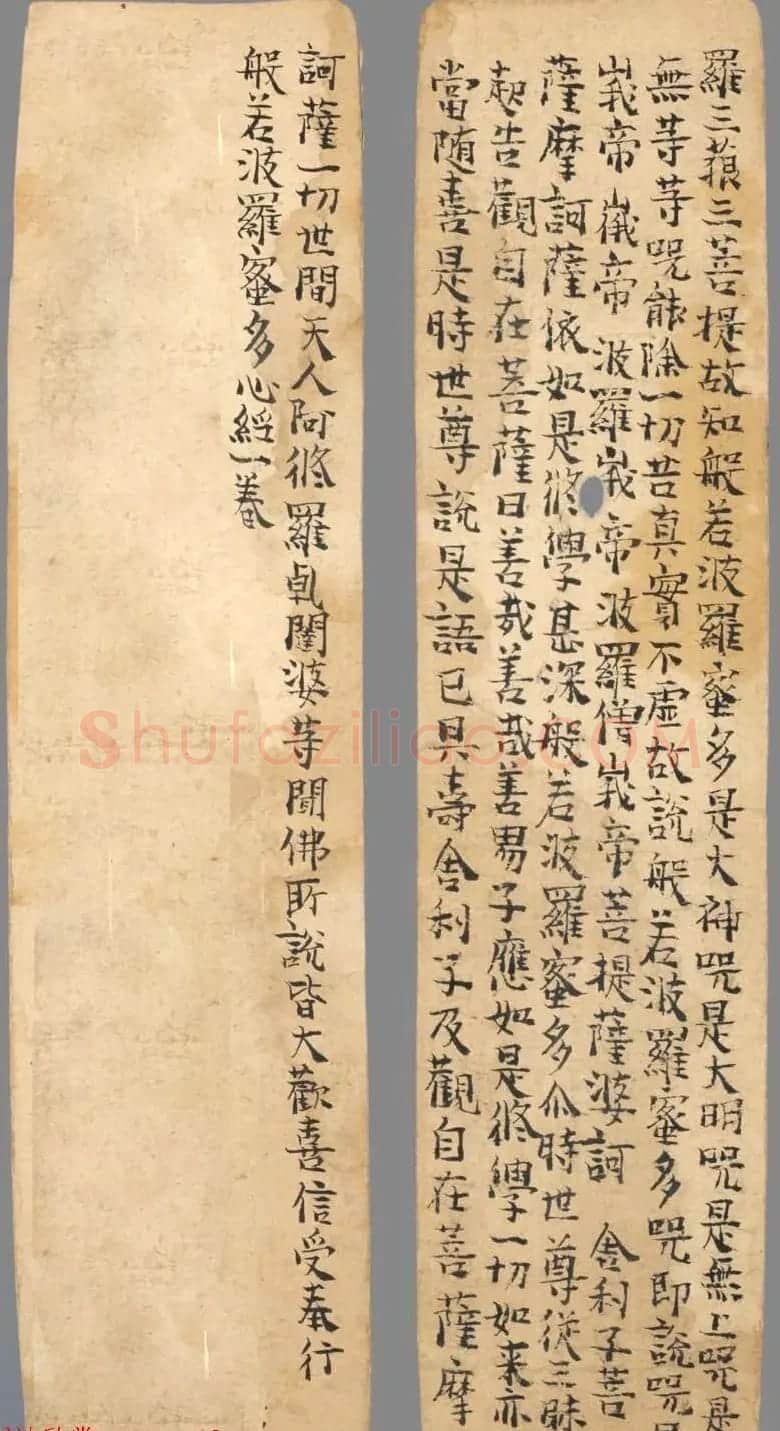 羅三藐三菩提故知般若波羅蜜多是大神咒是大明咒是無上咒是
無等等咒能除一切苦真實不虛故說般若波羅蜜多咒即說咒
峩帝峩帝波羅峩帝波羅僧峩帝菩提薩婆訶 舍利子菩
薩摩訶薩依如是修學甚深般若波羅蜜多尒時世尊從三昧
起告觀自在菩薩曰善哉善哉善男子應如是修學一切如来亦
當随喜是時世尊說是語已具壽舍利子及觀自在菩薩摩
訶薩一切世間天人阿修羅乹闥婆等聞佛所說皆大歡喜信受奉行
般若波羅蜜多心經一卷
Shufaziliao.COM